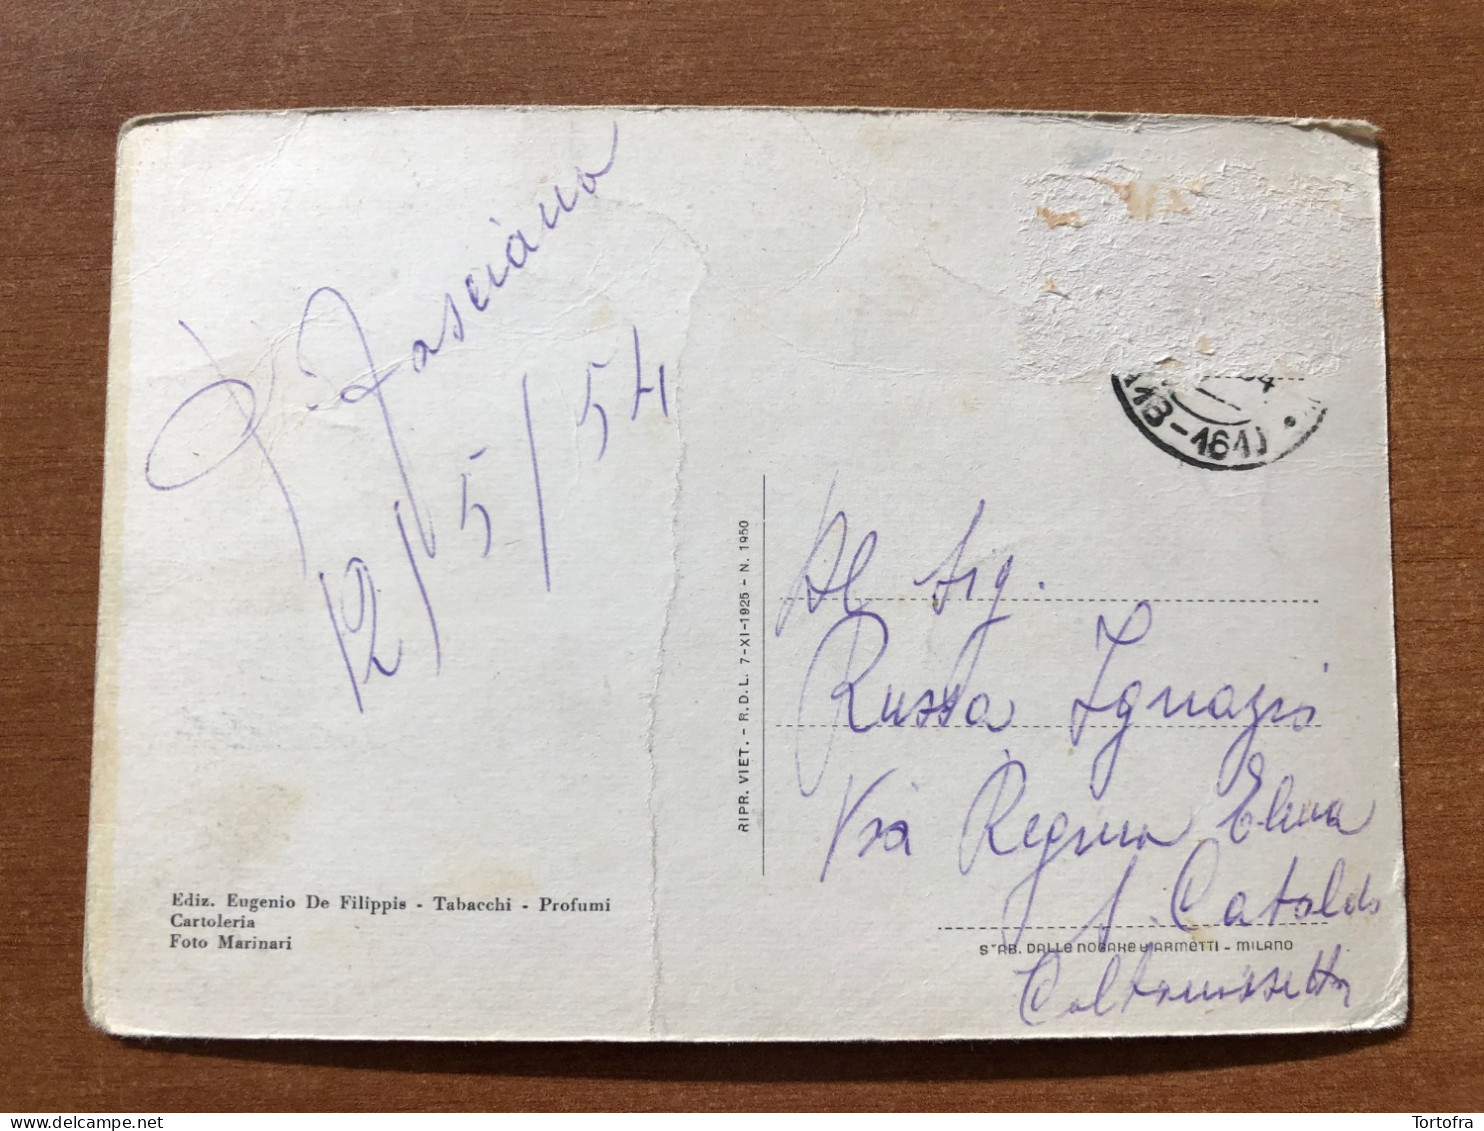 Fasciana
12/5/54
Ediz. Eugenio De Filippis - Tabacchi - Profumi
Cartoleria
Foto Marinari
RIPR. VIET. - R.D.L. 7-XI-1925 - N. 1950
54
(13-161)
Al Sig.
Russo Ignazio
Via Regina Elena
S. Cataldo
STAB. DALLE NOGARE E ARMETTI - MILANO
Caltanissetta
Tortofra